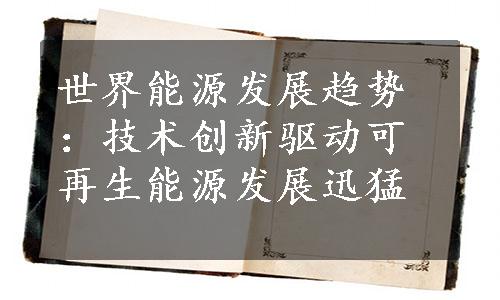 世界能源发展趋势
：技术创新驱动可
再生能源发展迅猛